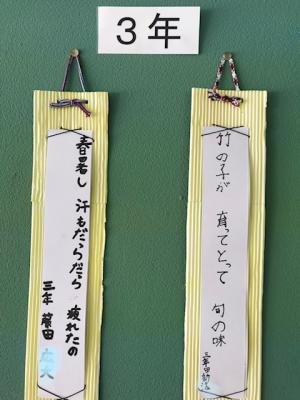 3年
春暑し 汗もだらだら 疲れたの
三年 藤田 広大
竹の子が 育ってとって 旬の味
三年 田